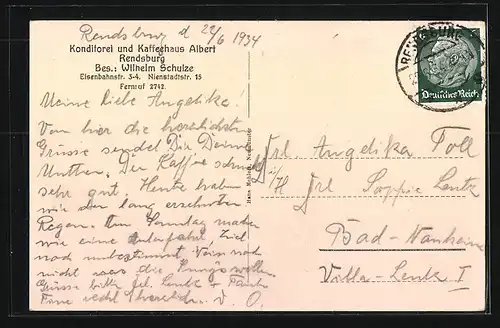 Rendsburg d 22/6 1934
Konditorei und Kaffeehaus Albert
Rendsburg
Bes.: Wilhelm Schulze
Eisenbahnstr. 3-4. Nienstadtstr. 15
Fernruf 2742.
Meine liebe Angelika!
Von hier die herzlichsten
Grüsse sendet Dir Deine
Mutter. Der Kaffee schmeckt
sehr gut. Heute haben
wir den lang ersehnten
Regen. Am Sonntag machen
wir eine Ziel
noch unbestimmt. Weiss noch
nicht was die Jungs wollen.
Grüsse bitte Frl. Lentz + Tante
RENDSBURG
Deutsches Reich
Frl Angelika Toll
Frl Sophie Lentz
Bad-Nauheim
Villa-Lentz I